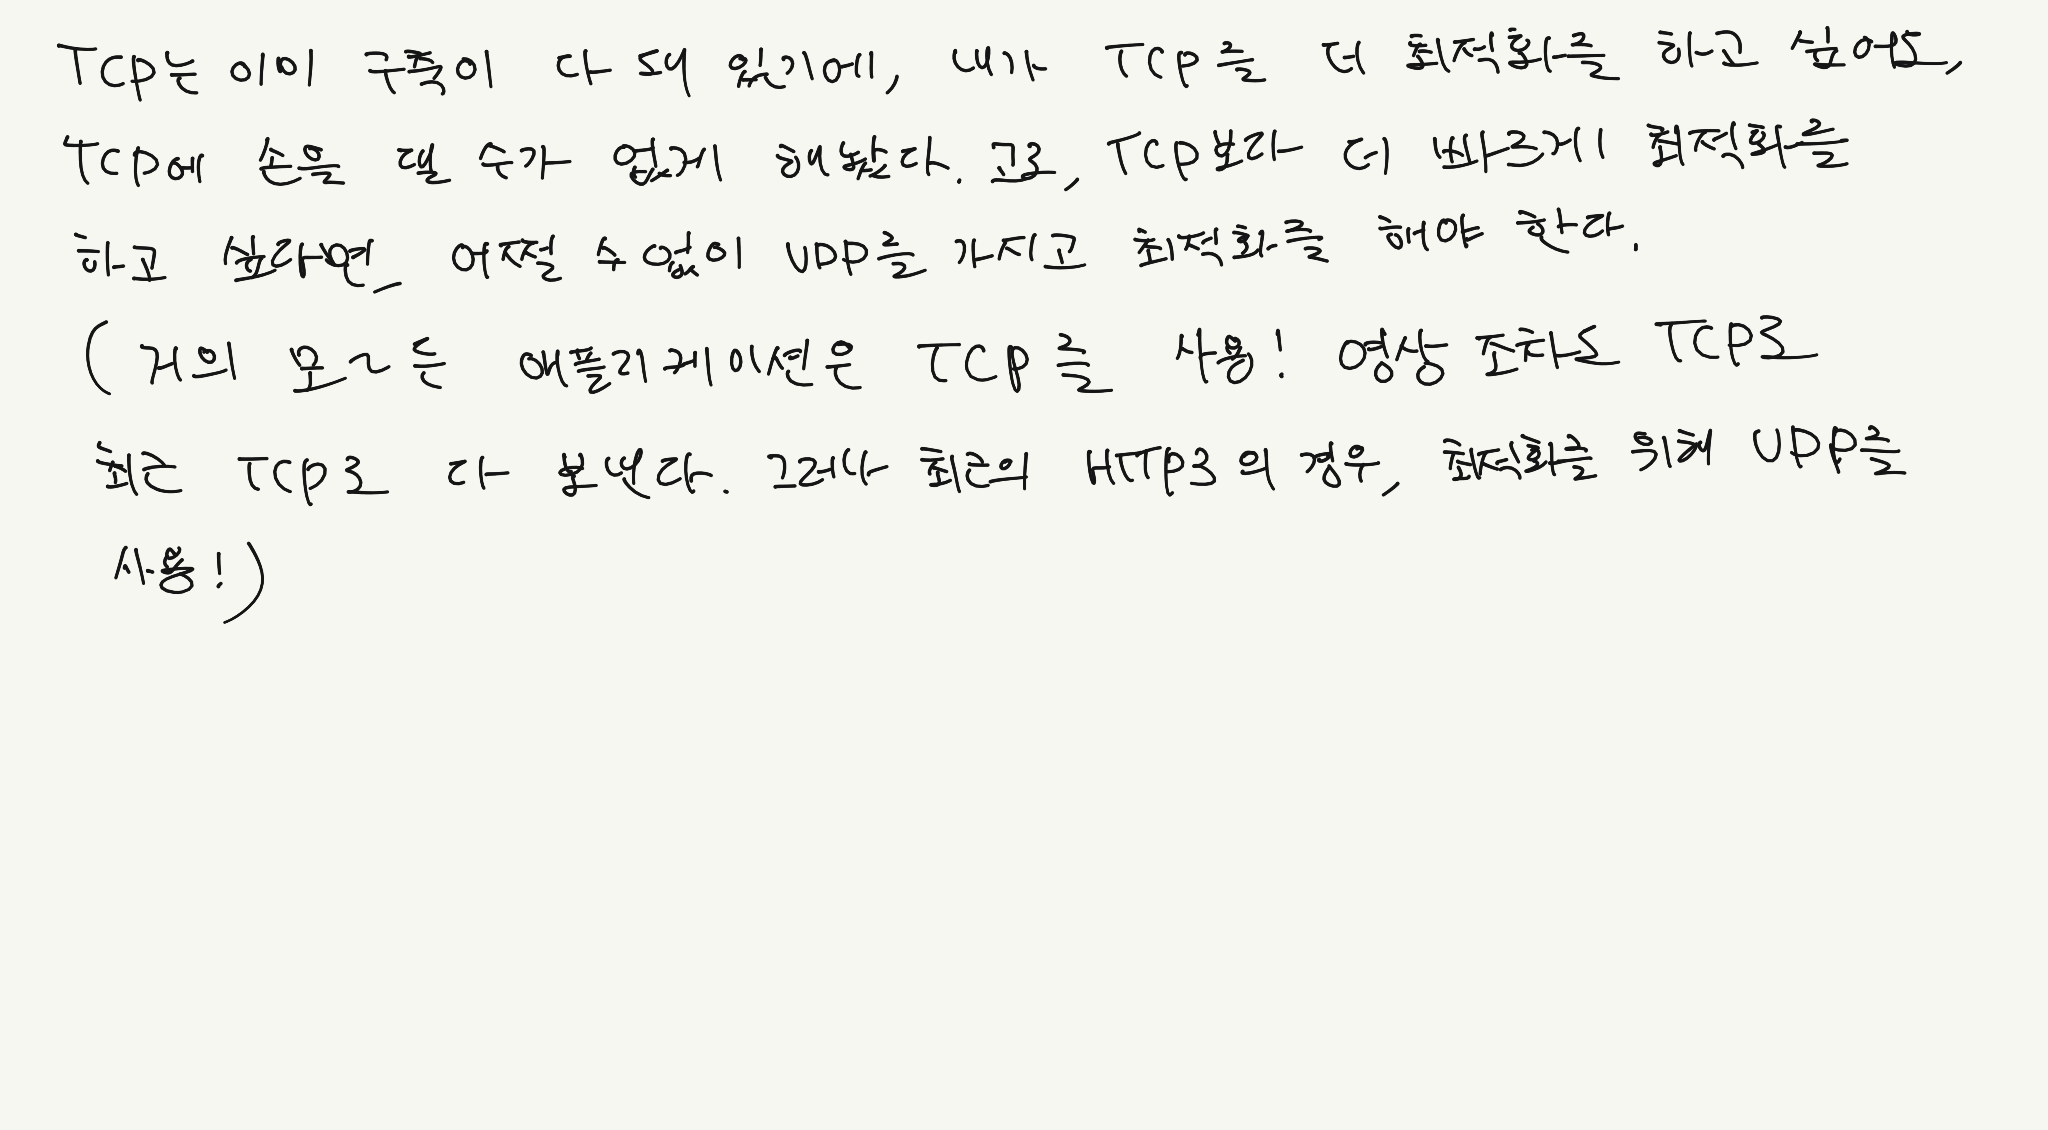 TCP는 이미 구축이 다 돼 있기에, 내가 TCP를 더 최적화를 하고 싶어도,
TCP에 손을 댈 수가 없게 해놨다. 고로, TCP보다 더 빠르게 최적화를
하고 싶다면, 어쩔 수 없이 UDP를 가지고 최적화를 해야 한다.
(거의 모~든 애플리케이션은 TCP를 사용! 영상 조차도 TCP로
최근 TCP로 다 보낸다. 그러나 최근의 HTTP3의 경우, 최적화를 위해 UDP를
사용!)